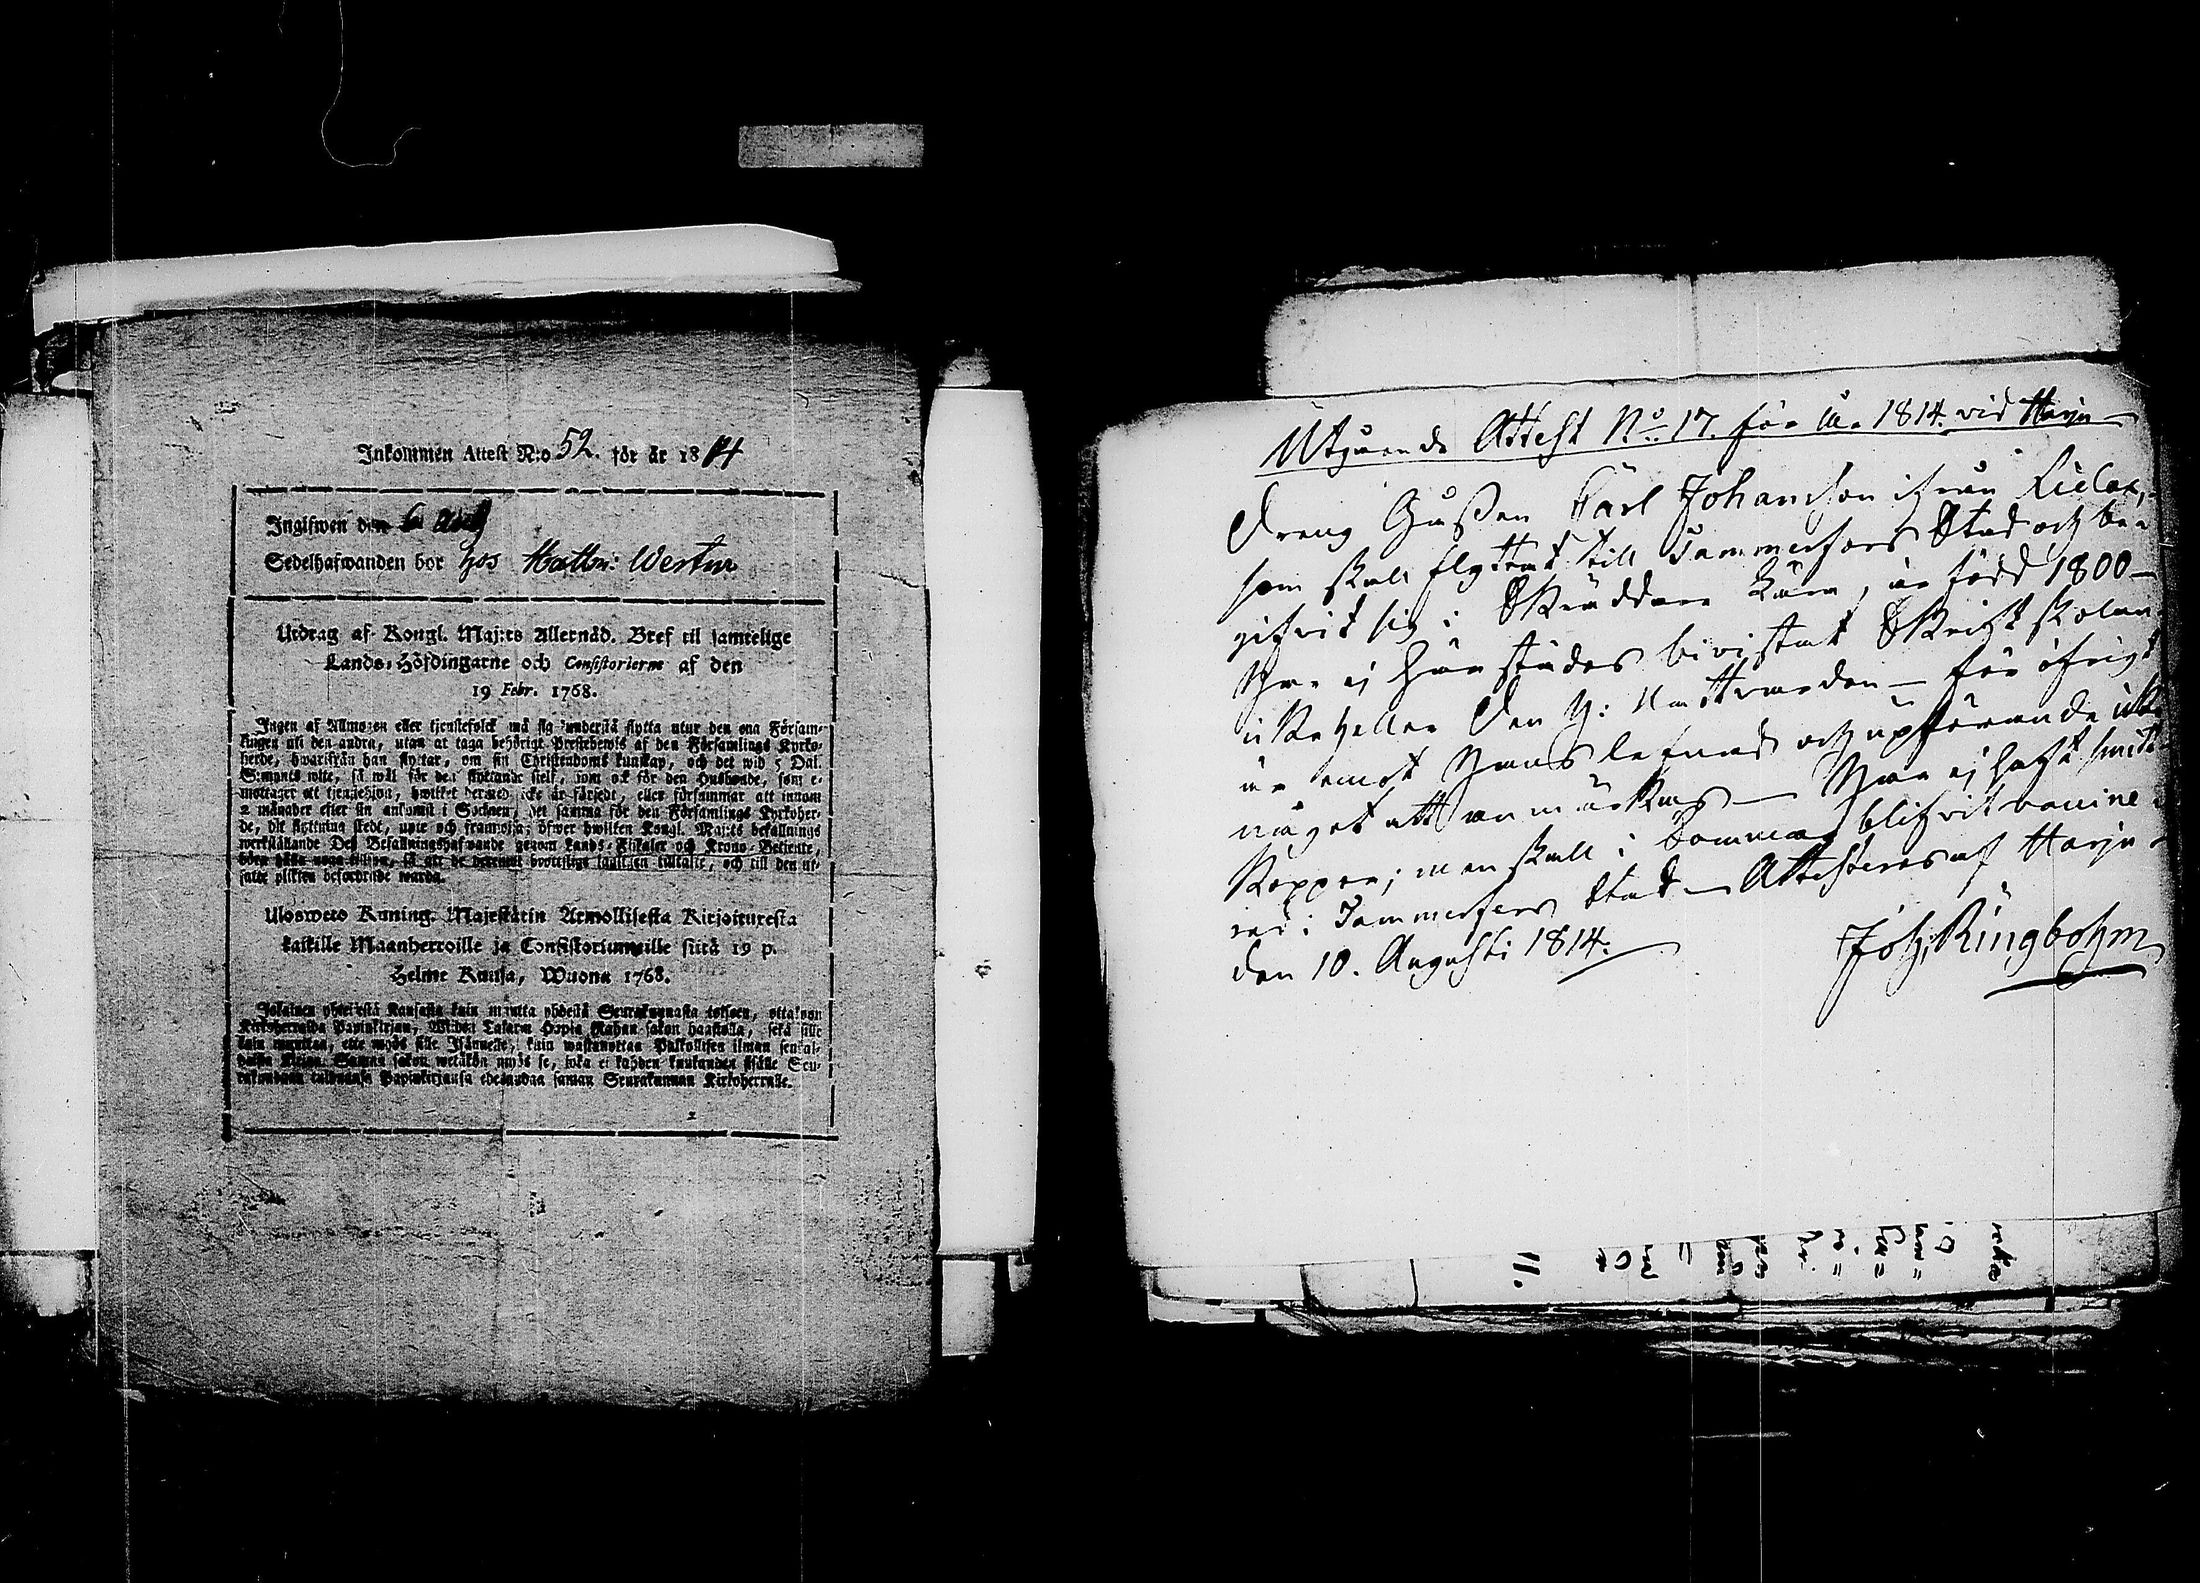 Inkommen Attest N:o 52. för år 1814
Ingifwen den 6 Aug
Sedelhafwanden bor hos Matts: Wertur
Utdrag af Kongl. Maj:ts Allernåd. Bref til samtelige
Lands-Höfdingarne och Consistorierne af den
19 Febr. 1768.
Ingen af Allmogen eller tjenstefolck må sig understå flytta utur den ena Försam-
lingen till den andra, utan at taga behörigt Prestebewis af den Församlings Kyrko-
herde, hwarifrån han flyttar, om sin Christendoms kunskap, och det wid 5 Dal.
S:mynts wite, så wäl för den flyttande sielf, som ock för den Husbonde, som e-
mottager ett tjenstehjon, hwilket dermed icke är försedt, eller försummar att innom
2 månader efter sin ankomst i Socknen, det samma för den Församlings Kyrkoher-
de, dit flyttning skedt, upte och framwisa; öfwer hwilken Kongl. Maj:ts befallnings
werkställande Des Befallningshafwande genom Lands-Fiskaler och Krono-Betjente,
böra hålla noga tillsyn, så att de deremot brottslige lagligen tilltalte, och till den ut-
satte plikten befordrade warda.
Ulosweto Kuning. Majestätin Armollisesta Kirjoituxesta
kaikille Maanherroille ja Consistoriumeille siitä 19 p.
Helme Kuusa, Wuona 1768.
Jokainen yhteisestä Kansasta kuin muutta yhdestä Seurakunnasta toiseen, ottakoon
Kirkoherralda Papinkirjan, Wiiden Talarin Hopia Rahan sakon haastolla, sekä sille
kuin muuttaa, ette myös sille Isännelle, kuin wastanottaa Palkollisen ilman senkal-
daista Kirjaa. Saman sakon wetäkön myös se, joka ei kahden kuukauden sisälle Seu-
rakundaan tulduansa Papinkirjansa edesandaa saman Seurakunnan Kirkoherralle.
2
Utgående Attest N:o 17. för år 1814. vid Harju
Dreng Gåssen Karl Johansson ifrån
som skall flyttat till Tammerfors Stad och be-
gifvit sig i Skräddare Lära, är född 1800 -
Har ej härstädes bivistat Skriftskolan
icke heller den H: Nattvarden - för öfrigt
är emot hans lefnad och uppförande icke
något att anmärkas - Har ej haft smitt-
koppor; men skall i Sommar blifvit vaccine-
rad i Tammerfors Stad - Attesteras af Harju
den 10. Augusti 1814.
Joh; Ringbohm
11.